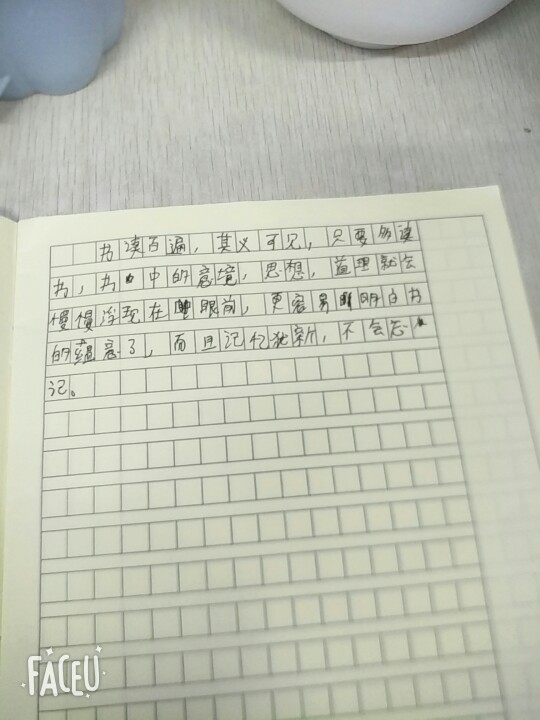 书读百遍，其义可见，只要多读
书，书中的意境，思想，道理就会
慢慢浮现在眼前，更容易明白书
的蕴意了，而且记忆犹新，不会忘
记。
FACEU